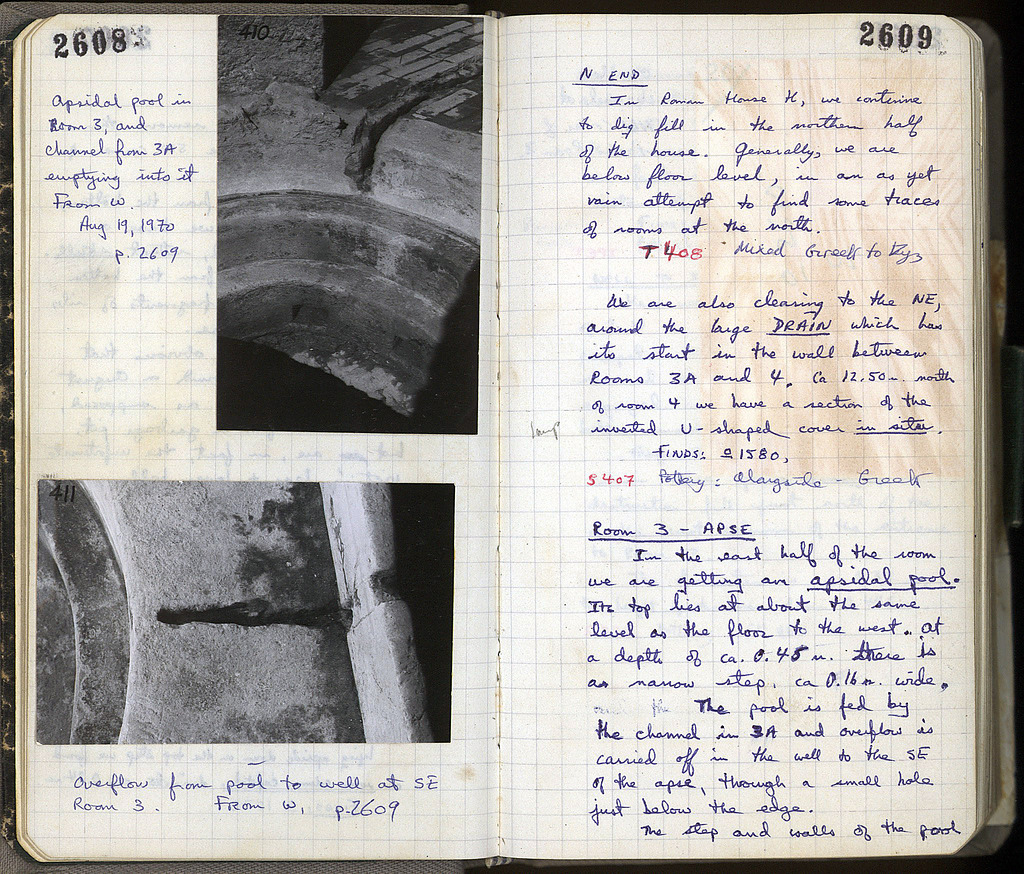 2608
410
Apsidal pool in
Room 3, and
channel from 3A
emptying into it
From W
Aug 19, 1970
p. 2609
411
Overflow from pool to well at SE
Room 3. From W, p. 2609
2609
N END
In Roman House H, we continue
to dig fill in the northern half
of the house. Generally, we are
below floor level, in an as yet
vain attempt to find some traces
of rooms at the north.
T 408 Mixed Greek to Byz
We are also clearing to the NE,
around the large DRAIN which has
its start in the wall between
Rooms 3A and 4. Ca 12.50 m. north
of room 4 we have a section of the
inverted U-shaped cover in situ.
lamp
FINDS: 1580,
S 407 Pottery: Alongside - Greek
Room 3 - APSE
In the east half of the room
we are getting an apsidal pool.
Its top lies at about the same
level as the floor to the west. At
a depth of ca. 0.45 m. there is
a narrow step, ca 0.16 m. wide.
The pool is fed by
the channel in 3A and overflow is
carried off in the well to the SE
of the apse, through a small hole
just below the edge.
The step and walls of the pool